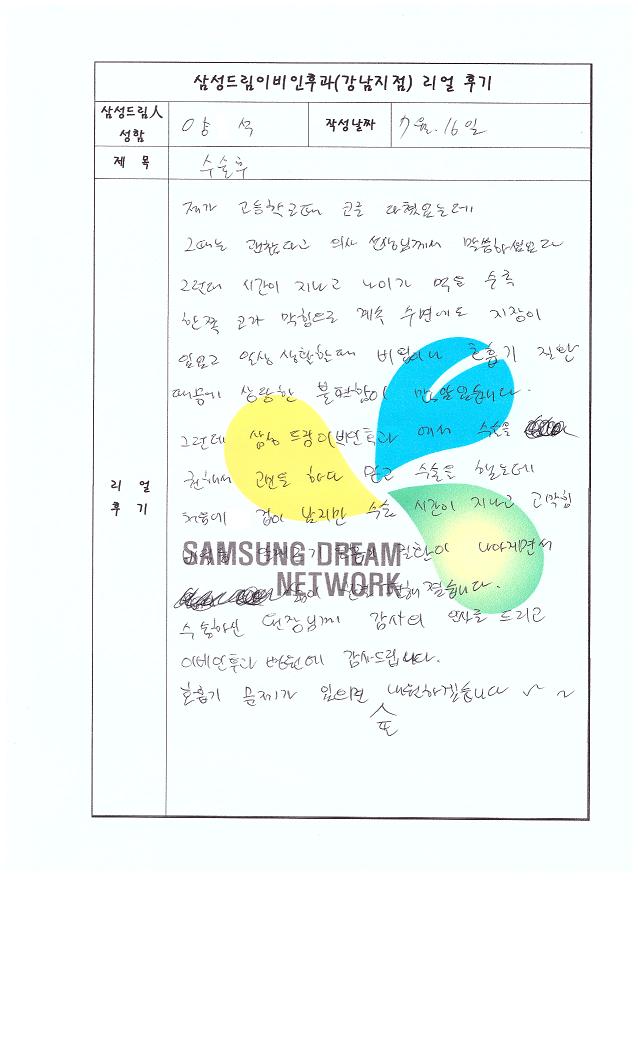 삼성드림이비인후과(강남지점) 리얼 후기
삼성드림人
성함
양 석
작성날짜
7월. 16일
제 목
수술후
리 얼
후 기
제가 고등학교때 코를 다쳤었는데
그때는 괜찮다고 의사 선생님께서 말씀하셨으나
그런데 시간이 지나고 나이가 먹을 수록
한쪽 코가 막힘으로 계속 수면에도 지장이
있었고 일상 생활한때 비염이나 호흡기 질환
때문에 상당한 불편함이 많았었습니다.
그런데 삼성 드림이비인후과 에서 수술을
권해서 고민을 하다 믿고 수술을 했는데
처음에 겁이 났지만 수술 시간이 지나고 코막힘
질환이 나아지면서
졌습니다.
수술하신 원장님께 감사의 인사를 드리고
이비인후과 병원에 감사드립니다.
호흡기 문제가 있으면 또 내원하겠습니다 ~ ~
SAMSUNG DREAM
NETWORK